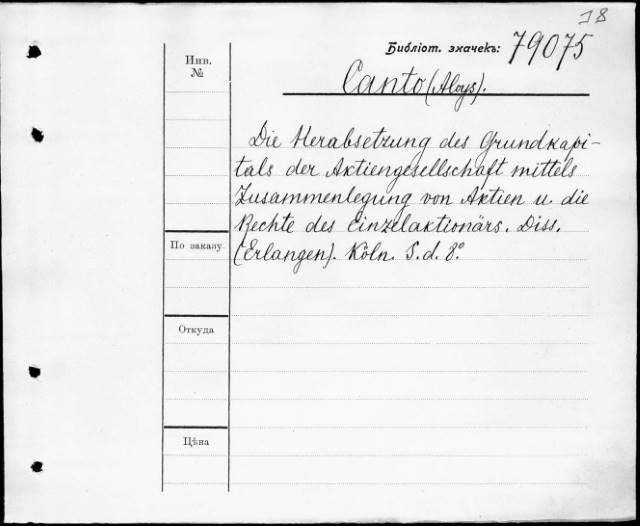 18
Библіот. значекъ: 79075
Инв.
№
Canto (Aloys).
Die Herabsetzung des Grundkapi-
tals der Aktiengesellschaft mittels
Zusammenlegung von Aktien u. die
Rechte des Einzelaktionärs. Diss.
По заказу.
(Erlangen). Köln. S. d. 8°.
Откуда
Цѣна